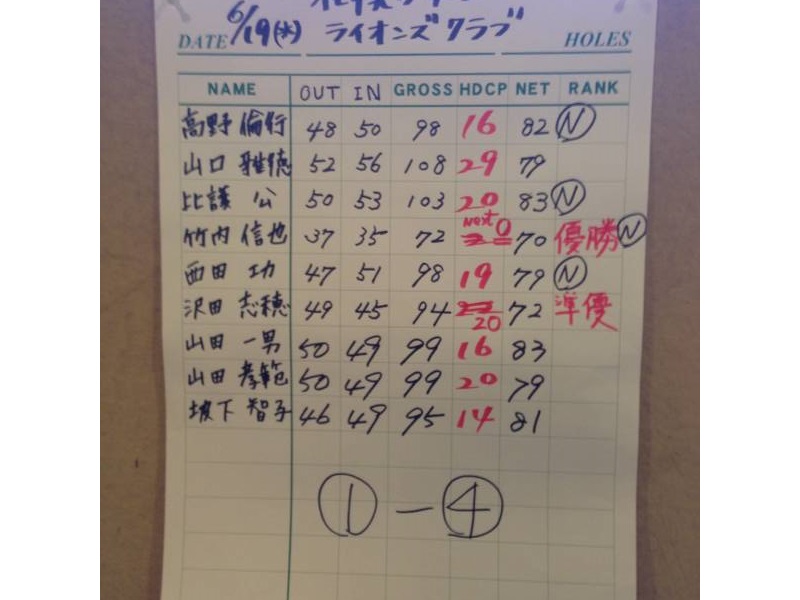 DATE 6/19(水) ライオンズクラブ HOLES
NAME OUT IN GROSS HDCP NET RANK
高野 倫行 48 50 98 16 82 N
山口 雅徳 52 56 108 29 79
比護 公 50 53 103 20 83 N
竹内 信也 37 35 72 Next 0 2 70 優勝 N
西田 功 47 51 98 19 79 N
沢田 志穂 49 45 94 22 20 72 準優
山田 一男 50 49 99 16 83
山田 孝範 50 49 99 20 79
坂下 智子 46 49 95 14 81
① — ④